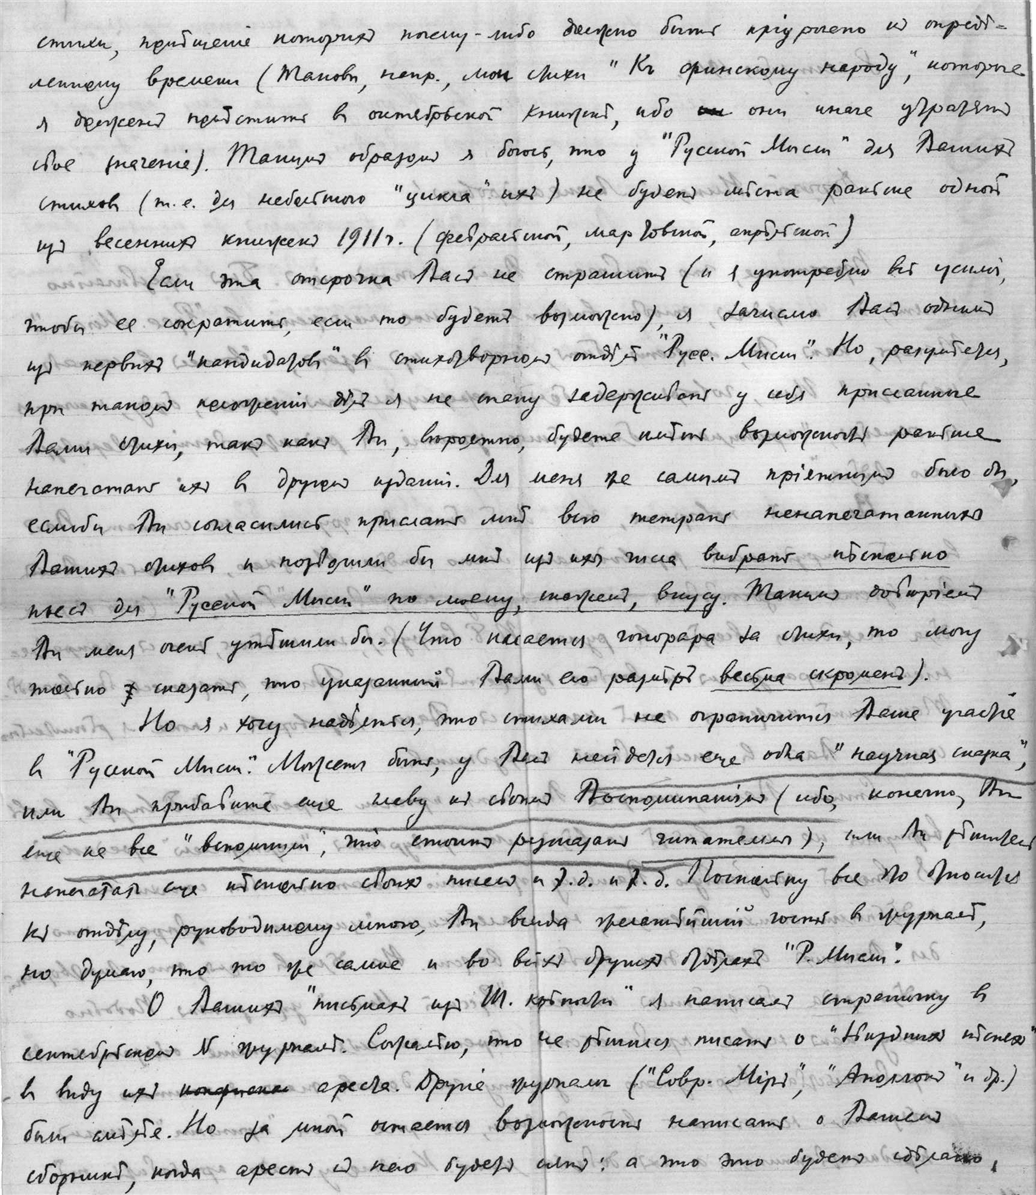 стихи, помѣщеніе которыхъ почему-либо должно быть пріурочено къ опредѣ-
ленному времени (таковы, напр., мои стихи "Къ финскому народу", которые
я долженъ помѣстить въ октябрьской книжкѣ, ибо они иначе утратятъ
свое значеніе). Такимъ образомъ я боюсь, что у "Русской Мысли" для Вашихъ
стиховъ (т.е. для небольшого "цикла" ихъ) не будетъ мѣста раньше одной
изъ весеннихъ книжекъ 1911 г. (февральской, мартовской, апрѣльской)
Если эта отсрочка Васъ не страшитъ (и я употреблю всѣ усилія,
чтобы ее сократить, если то будетъ возможно), я зачислю Васъ однимъ
изъ первыхъ "кандидатовъ" въ стихотворномъ отдѣлѣ "Русс. Мысли". Но, разумѣется,
при такомъ положеніи дѣлъ я не стану задерживать у себя присланные
Вами стихи, такъ какъ Вы, вѣроятно, будете имѣть возможность раньше
напечатать ихъ въ другомъ изданіи. Для меня же самымъ пріятнымъ было бы,
еслибы Вы согласились прислать мнѣ всю тетрадь ненапечатанныхъ
Вашихъ стиховъ и позволили бы мнѣ изъ ихъ числа выбрать нѣсколько
пьесъ для "Русской Мысли" по моему, скажемъ, вкусу. Такимъ довѣріемъ
Вы меня очень утѣшили бы. (Что касается гонорара за стихи, то могу
только сказать, что указанный Вами его размѣръ весьма скроменъ).
Но я хочу надѣяться, что стихами не ограничится Ваше участіе
въ "Русской Мысли". Можетъ быть, у Васъ найдется еще одна "научная сказка",
или Вы прибавите еще главу къ своимъ Воспоминаніямъ (ибо, конечно, Вы
еще не все "вспомнили", что стоитъ разсказать читателямъ), или Вы рѣшитесь
напечатать еще нѣсколько своихъ писемъ и т.д. и т.д. Поскольку все это относится
къ отдѣлу, руководимому мною, Вы всегда желаннѣйшій гость въ журналѣ,
но думаю, что то же самое и во всѣхъ другихъ отдѣлахъ "Р. Мысли".
О Вашихъ "письмахъ изъ Ш. крѣпости" я написалъ страничку въ
сентябрьскомъ № журнала. Сожалѣю, что не рѣшился писать о "Звѣздныхъ пѣсняхъ"
въ виду ихъ ареста. Другіе журналы ("Совр. Міръ", "Аполлонъ" и др.)
были смѣлѣе. Но за мной остается возможность написать о Вашемъ
сборникѣ, когда арестъ съ него будетъ снятъ: а что это будетъ сдѣлано,